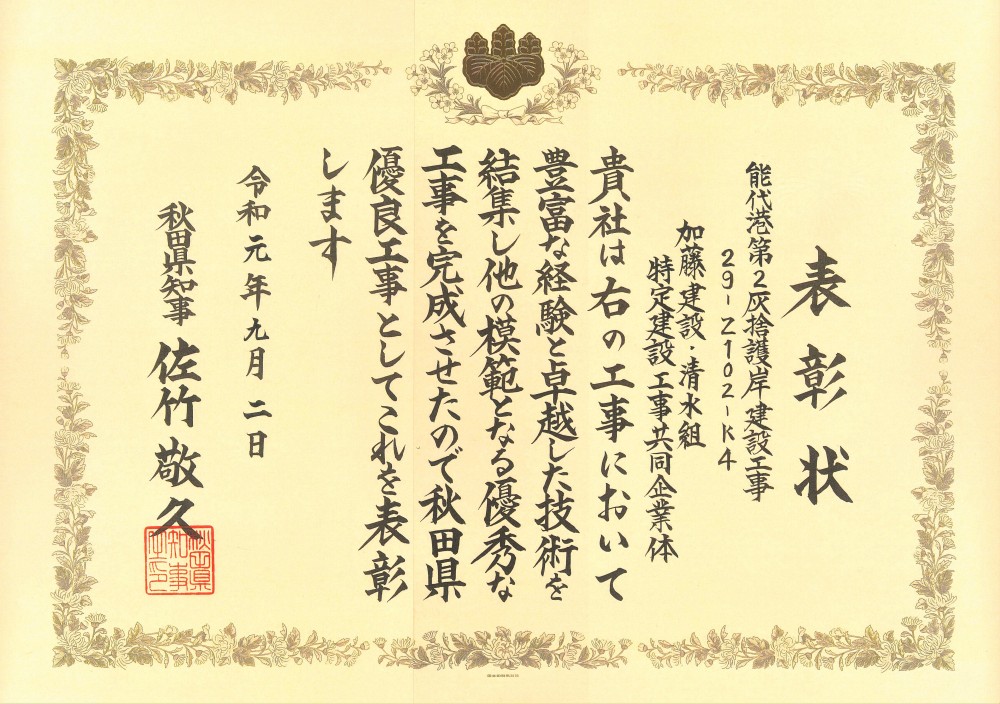 表彰状
能代港第2灰捨護岸建設工事
29-Z102-K4
加藤建設・清水組
特定建設工事共同企業体
貴社は右の工事において
豊富な経験と卓越した技術を
結集し他の模範となる優秀な
工事を完成させたので秋田県
優良工事としてこれを表彰
します
令和元年九月二日
秋田県知事 佐竹敬久
秋田県
知事
之印